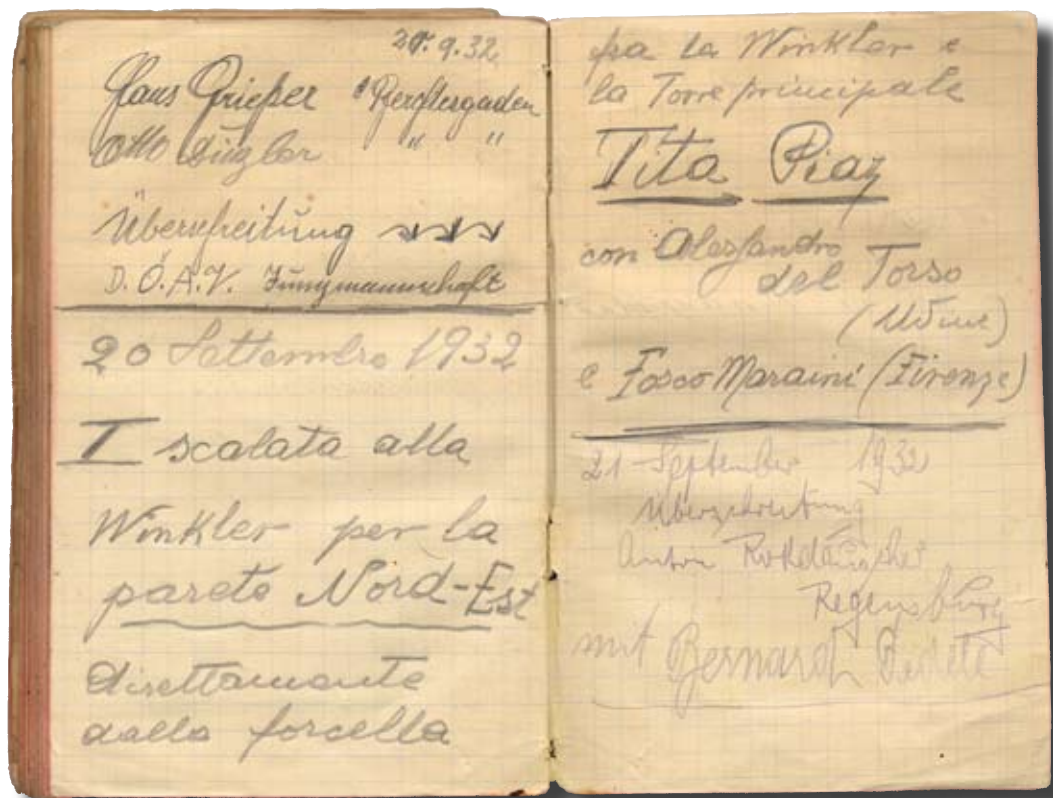 20.9.32
Hans Grießer Berchtesgaden
Otto Ziegler " "
Überschreitung
D.Ö.A.V. Jungmannschaft
20 Settembre 1932
I scalata alla
Winkler per la
parete Nord-Est
direttamente
dalla forcella
fra la Winkler e
la Torre principale
Tita Piaz
con Alessandro
del Torso
(Udine)
e Fosco Maraini (Firenze)
21 September 1932
Überschreitung
Anton
Regensburg
mit Bernard